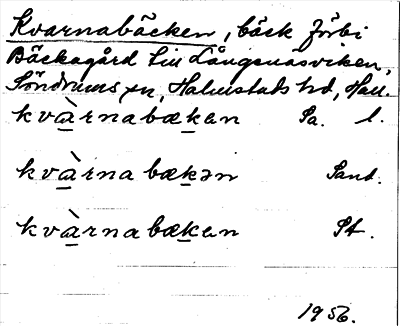 Kvarnabäcken, bäck förbi
Bäckagård till Långenäsviken,
Söndrums sn, Halmstads hd, Hall.
kvàrnabækan Sa. l.
kvàrnabækən Sand.
kvàrnabækan St.
1956.